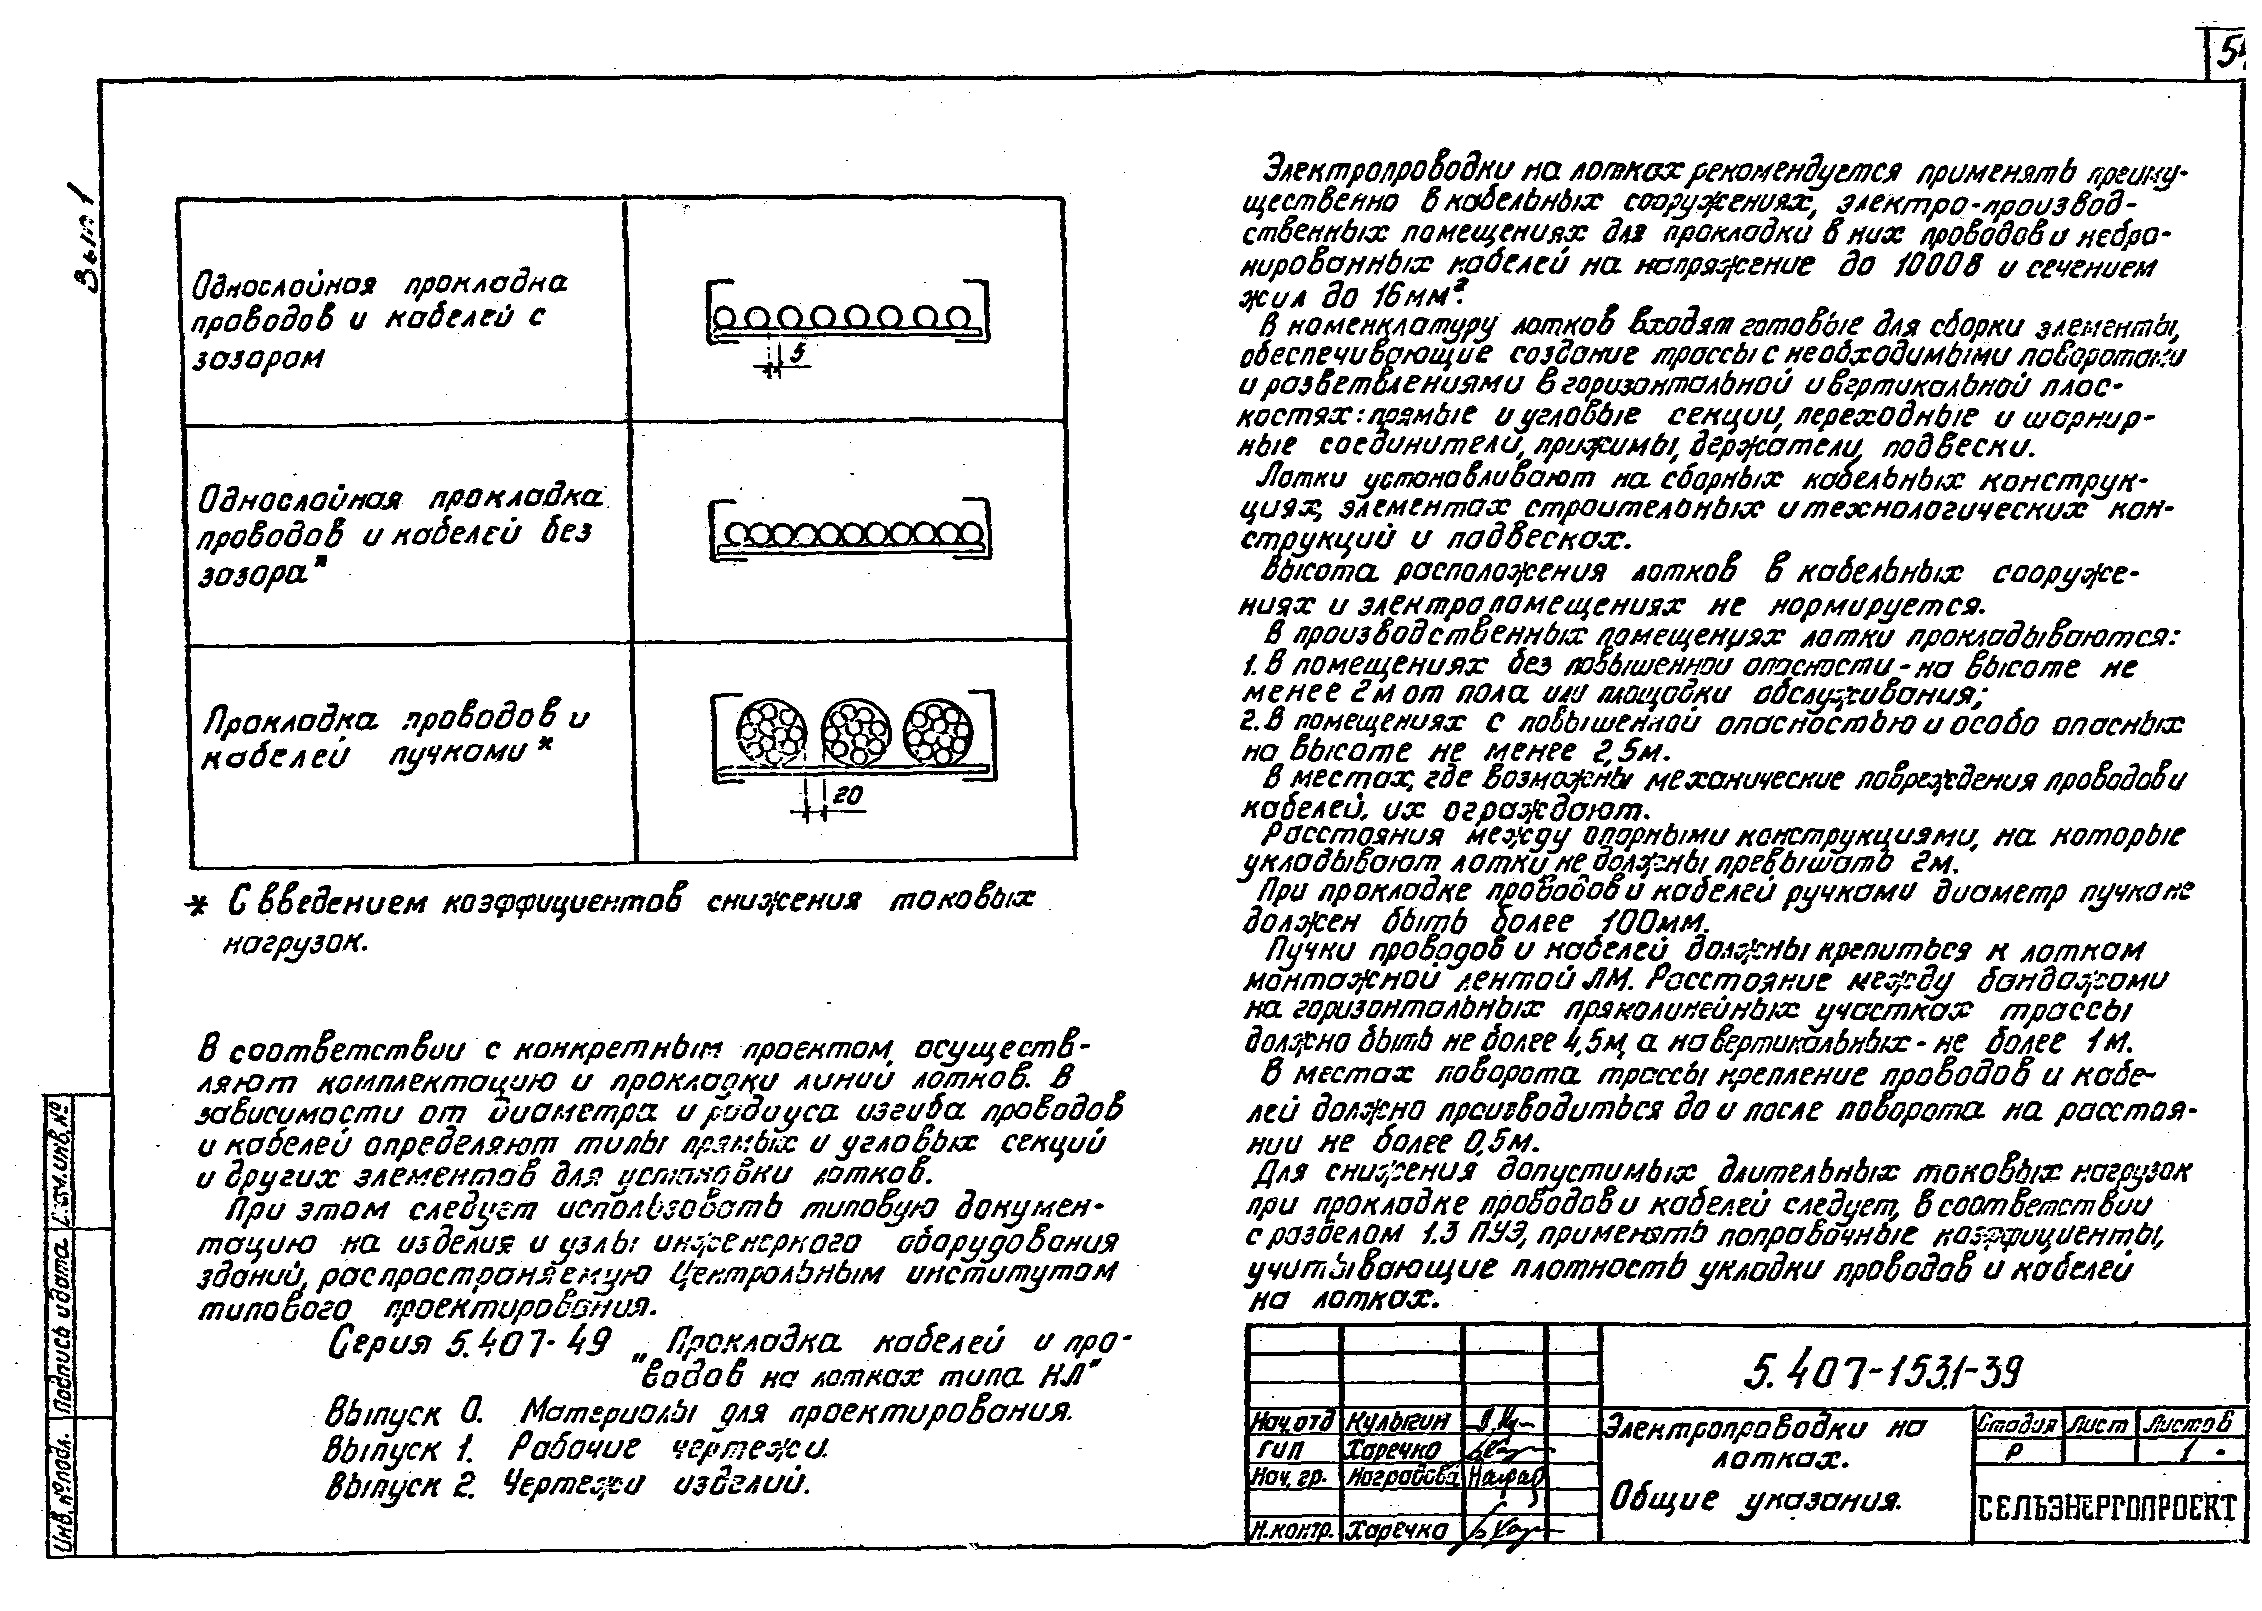 Вып 1
Однослойная прокладка
проводов и кабелей с
зазором
5
Однослойная прокладка
проводов и кабелей без
зазора*
Прокладка проводов и
кабелей пучками*
20
* С введением коэффициентов снижения токовых
нагрузок.
В соответствии с конкретным проектом осуществ-
ляют комплектацию и прокладки линий лотков. В
зависимости от диаметра и радиуса изгиба проводов
и кабелей определяют типы прямых и угловых секций
и других элементов для установки лотков.
При этом следует использовать типовую докумен-
тацию на изделия и узлы инженерного оборудования
зданий, распространяемую Центральным институтом
типового проектирования.
Серия 5.407-49 „Прокладка кабелей и про-
"водов на лотках типа НЛ"
Выпуск 0. Материалы для проектирования.
Выпуск 1. Рабочие чертежи.
Выпуск 2. Чертежи изделий.
Электропроводки на лотках рекомендуется применять преиму-
щественно в кабельных сооружениях, электро-производ-
ственных помещениях для прокладки в них проводов и небро-
нированных кабелей на напряжение до 1000В и сечением
жил до 16мм².
В номенклатуру лотков входят готовые для сборки элементы,
обеспечивающие создание трассы с необходимыми поворотами
и разветвлениями в горизонтальной и вертикальной плос-
костях: прямые и угловые секции, переходные и шарнир-
ные соединители, прижимы, держатели, подвески.
Лотки устанавливают на сборных кабельных конструк-
циях, элементах строительных и технологических кон-
струкций и подвесках.
Высота расположения лотков в кабельных сооруже-
ниях и электропомещениях не нормируется.
В производственных помещениях лотки прокладываются:
1. В помещениях без повышенной опасности - на высоте не
менее 2м от пола или площадки обслуживания;
2. В помещениях с повышенной опасностью и особо опасных
на высоте не менее 2,5м.
В местах, где возможны механические повреждения проводов и
кабелей, их ограждают.
Расстояния между опорными конструкциями, на которые
укладывают лотки, не должны превышать 2м.
При прокладке проводов и кабелей ручками диаметр пучка не
должен быть более 100мм.
Пучки проводов и кабелей должны крепиться к лоткам
монтажной лентой ЛМ. Расстояние между бандажами
на горизонтальных прямолинейных участках трассы
должно быть не более 4,5м, а на вертикальных - не более 1м.
В местах поворота трассы крепление проводов и кабе-
лей должно производиться до и после поворота на расстоя-
нии не более 0,5м.
Для снижения допустимых длительных токовых нагрузок
при прокладке проводов и кабелей следует, в соответствии
с разделом 1.3 ПУЭ, применять поправочные коэффициенты,
учитывающие плотность укладки проводов и кабелей
на лотках.
5.407-153.1-39
Нач.отд Кулыгин
ГИП Харечко
Нач. гр. Наградова
Н.контр. Харечко
Электропроводки на
лотках.
Общие указания.
Стадия Лист Листов
Р 1
СЕЛЬЭНЕРГОПРОЕКТ
Инв. № подл. Подпись и дата Взам.инв.№